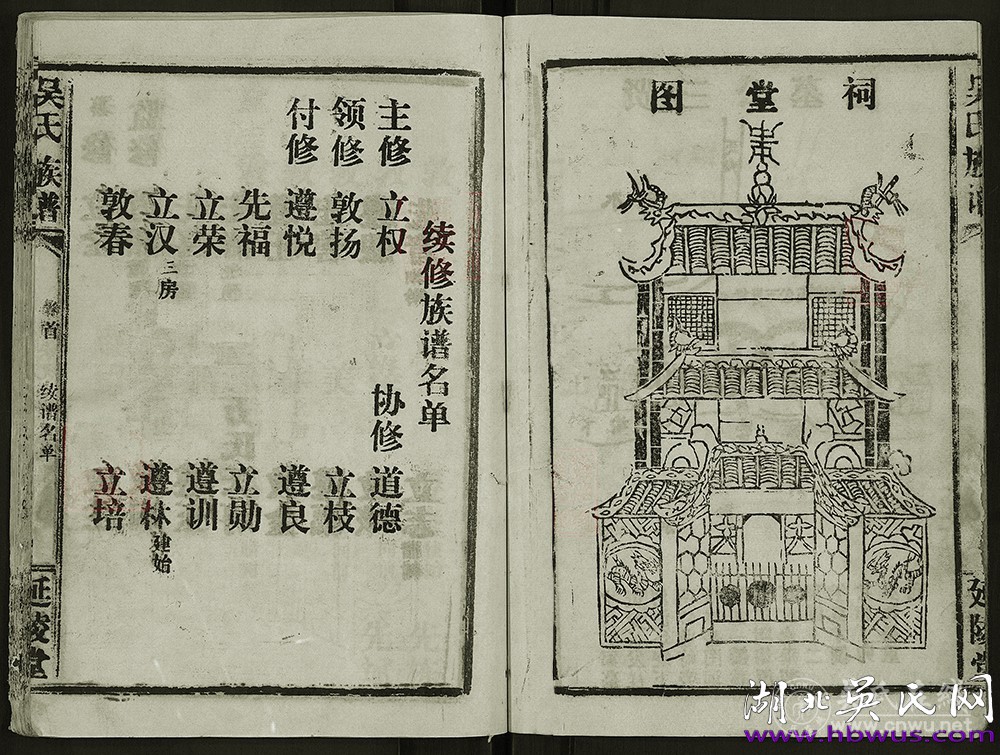 祠堂图
吴氏族谱
延陵堂
续修族谱名单
主修 立权
领修 敦扬
付修 遵悦
先福
立荣
立汉 三房
敦春
协修 道德
立枝
遵良
立勋
遵训
遵林 建始
立培
吴氏族谱
卷首
续谱名单
延陵堂
湖北吴氏网
www.hbwus.com
www.cnwu.net